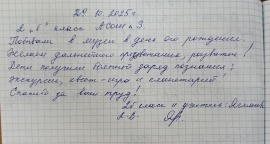 29. 10. 2025г.
2 "б" класс АСОШ № 3.
Побывали в музее в день его рождения.
Желаем дальнейшего процветания, развития!
Дети получили большой заряд познания:
экскурсия, квест-игра и планетарий!
Спасибо за ваш труд!
2б класс и учитель:
А.В.